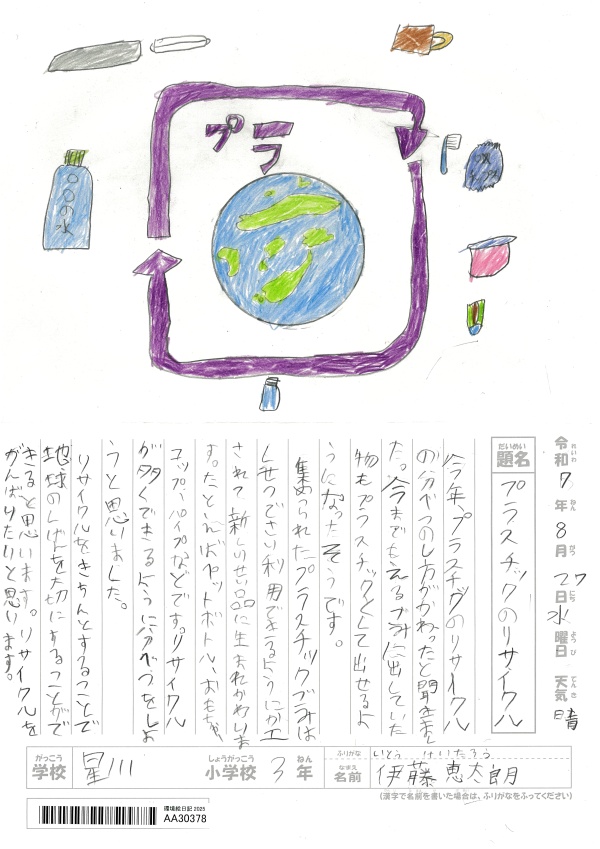 プラ
○○の水
令和7年8月27日水曜日 天気 晴
れいわ ねん がつ にち ようび てんき
だいめい
題名 プラスチックのリサイクル
今年プラスチックのリサイクル
の分べつのし方がかわったと聞きまし
た。今までもえるゴみに出していた
物もプラスチックとして出せるよ
うになったそうです。
集められたプラスチックごみは
しせつでさい利用できるようにか工
されて、新しいせい品に生まれかわいま
す。たとえばペットボトル、おもちゃ、
コップ、パイプなどです。リサイクル
が多くできるように分べつをしよ
うと思いました。
リサイクルをきちんとすることで
地球のしげんを大切にすることがで
きると思います。リサイクルを
がんばりたいと思います。
がっこう しょうがっこう ねん
学校 星川 小学校 3年
ふりがな いとう けいたろう
なまえ
名前 伊藤 恵太郎
(漢字で名前を書いた場合は、ふりがなをふってください)
環境絵日記 2025
AA30378